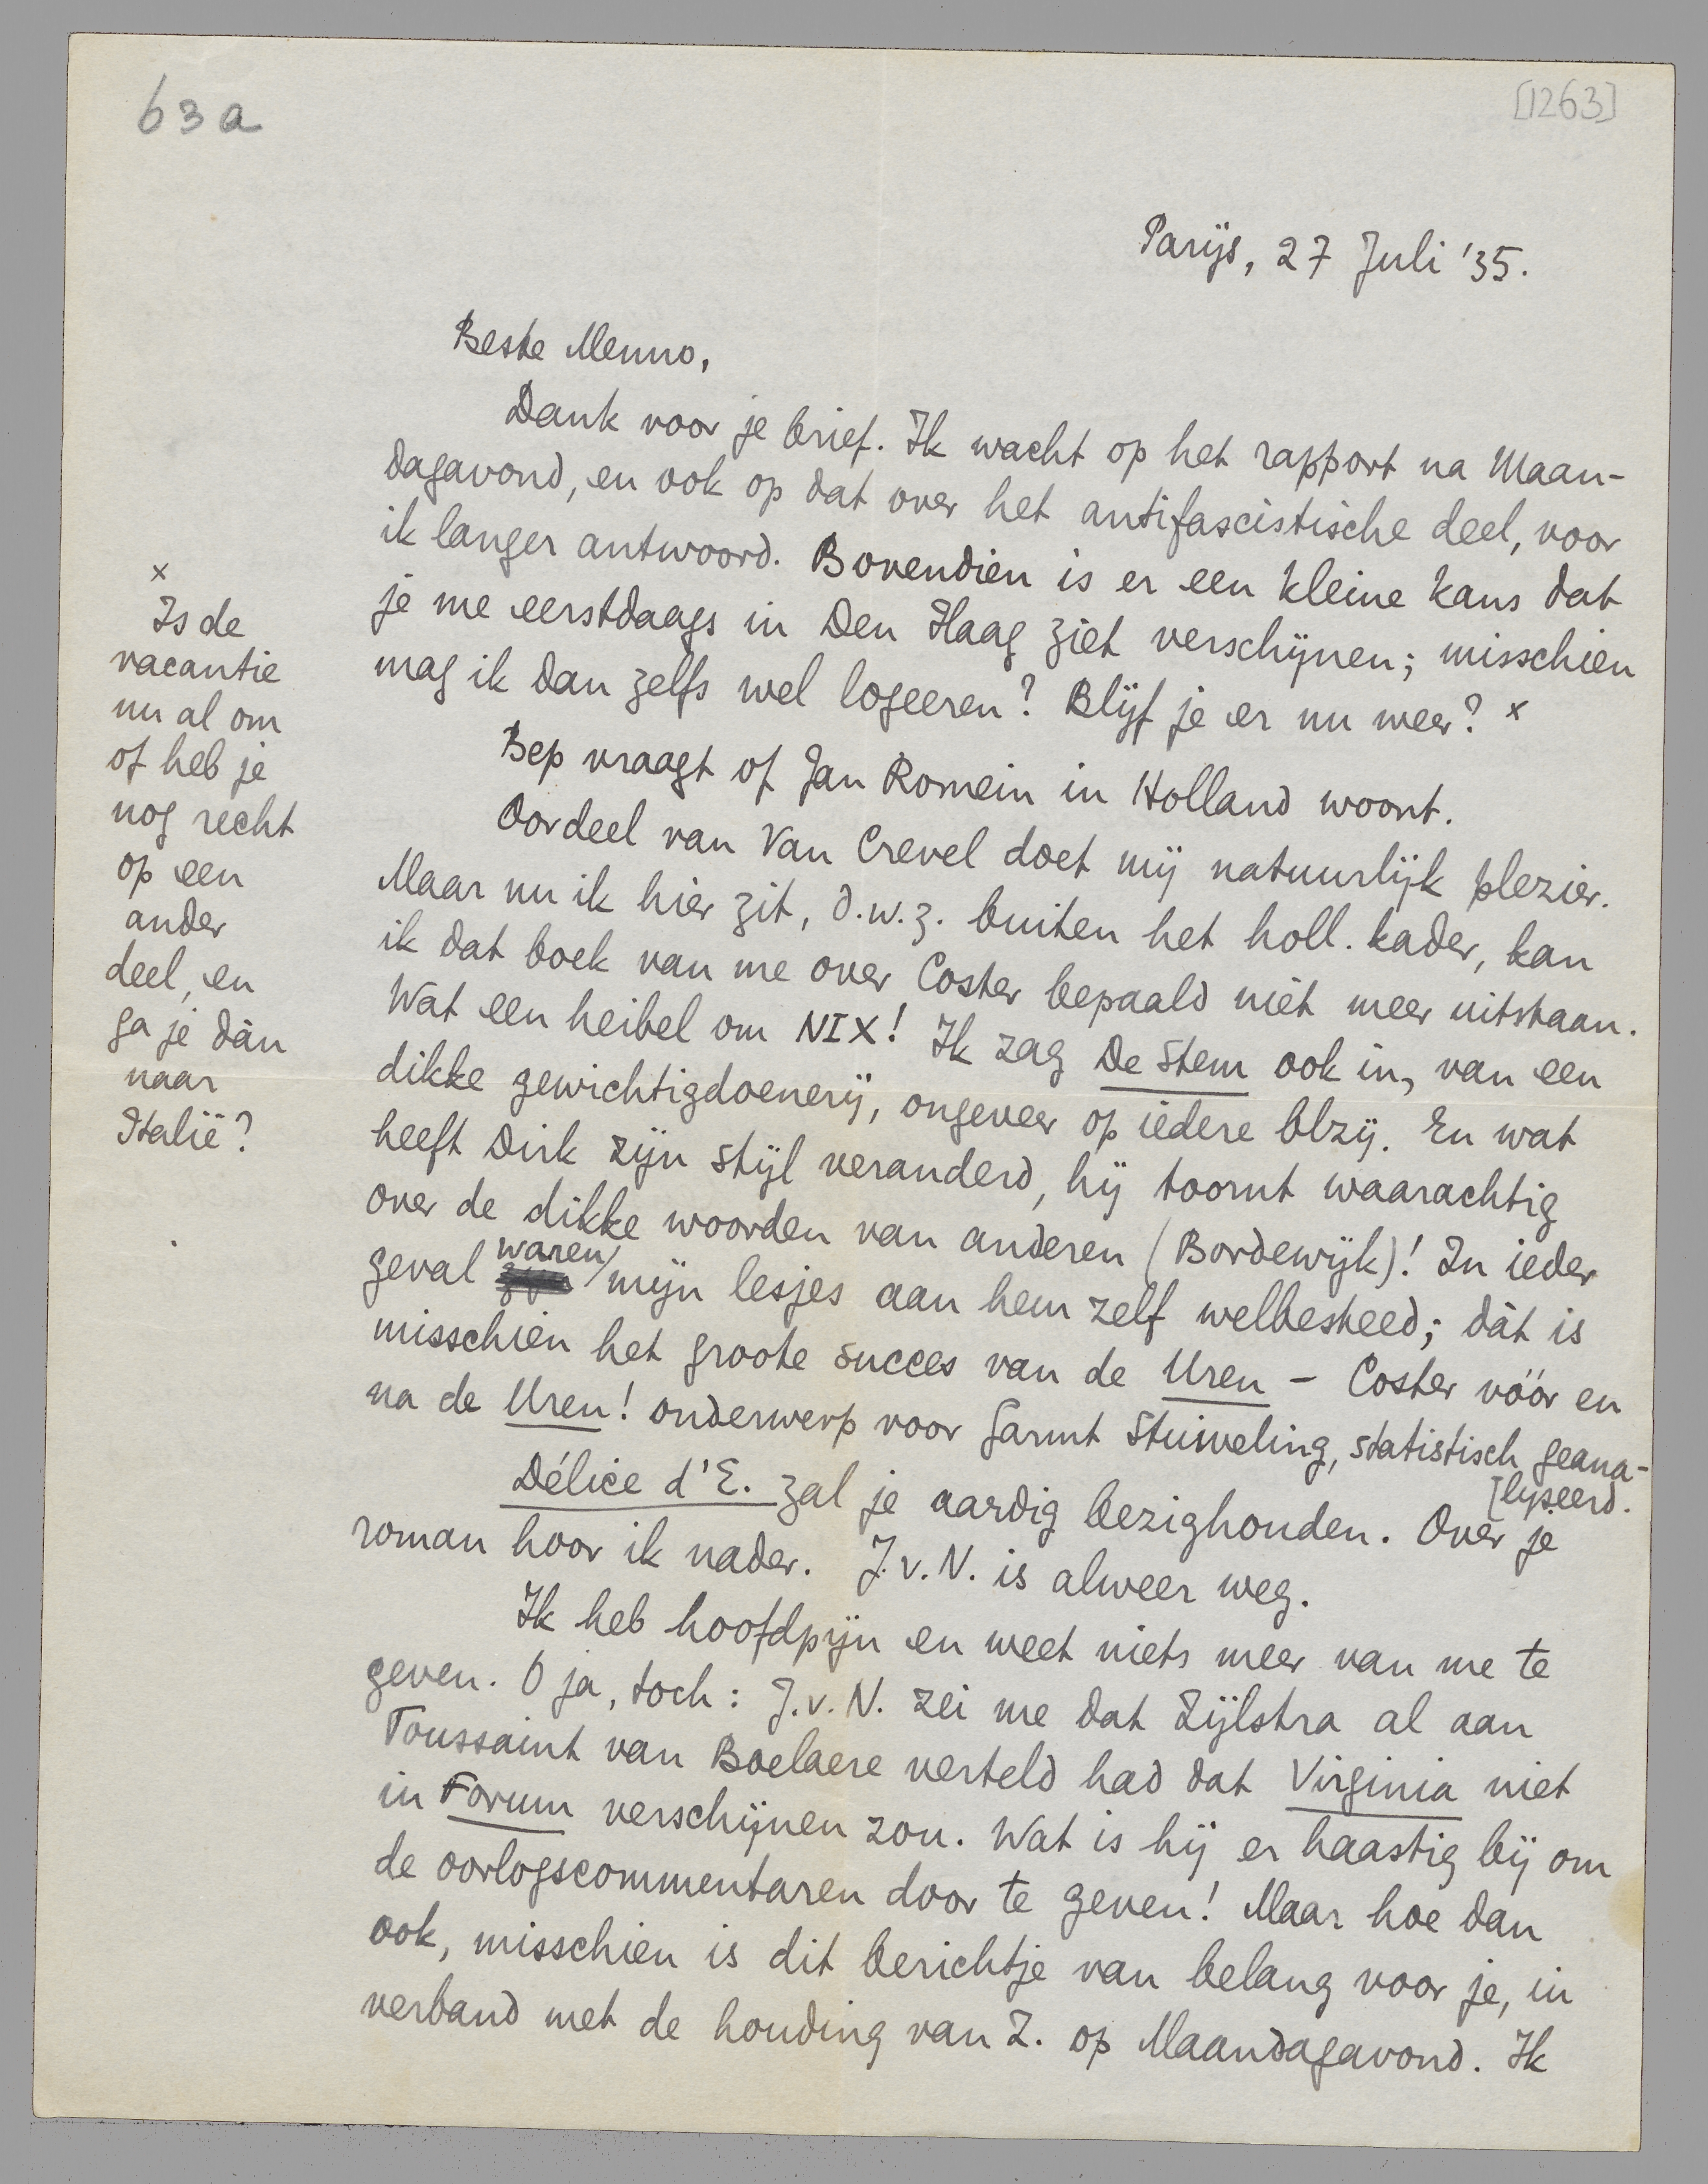 63a
[1263]
Parijs, 27 Juli '35.
Beste Menno,
Dank voor je brief. Ik wacht op het rapport na Maan-
dagavond, en ook op dat over het antifascistische deel, voor
ik langer antwoord. Bovendien is er een kleine kans dat
je me eerstdaags in Den Haag ziet verschijnen; misschien
mag ik dan zelfs wel logeeren? Blijf je er nu weer? x
Bep vraagt of Jan Romein in Holland woont.
Oordeel van Van Crevel doet mij natuurlijk plezier.
Maar nu ik hier zit, d.w.z. buiten het holl. kader, kan
ik dat boek van me over Coster bepaald niet meer uitstaan.
Wat een heibel om NIX! Ik zag De Stem ook in, van een
dikke gewichtigdoenerij, ongeveer op iedere blzij. En wat
heeft Dirk zijn stijl veranderd, hij toornt waarachtig
over de dikke woorden van anderen (Bordewijk)! In ieder
geval waren mijn lesjes aan hem zelf welbesteed; dàt is
misschien het groote succes van de Uren – Coster vóór en
na de Uren! onderwerp voor Garmt Stuiveling, statistisch geana-
[lyseerd.
Délice d'E. zal je aardig bezighouden. Over je
roman hoor ik nader. J.v.N. is alweer weg.
Ik heb hoofdpijn en weet niets meer van me te
geven. O ja, toch: J.v.N. zei me dat Zijlstra al aan
Toussaint van Boelaere verteld had dat Virginia niet
in Forum verschijnen zou. Wat is hij er haastig bij om
de oorlogscommentaren door te geven! Maar hoe dan
ook, misschien is dit berichtje van belang voor je, in
verband met de houding van Z. op Maandagavond. Ik
x
Is de
vacantie
nu al om
of heb je
nog recht
op een
ander
deel, en
ga je dàn
naar
Italië?